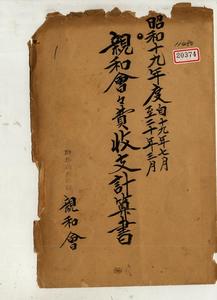 昭和十九年度
自十九年七月
至二十年三月
親和會々費收支計算書
親和會
20374